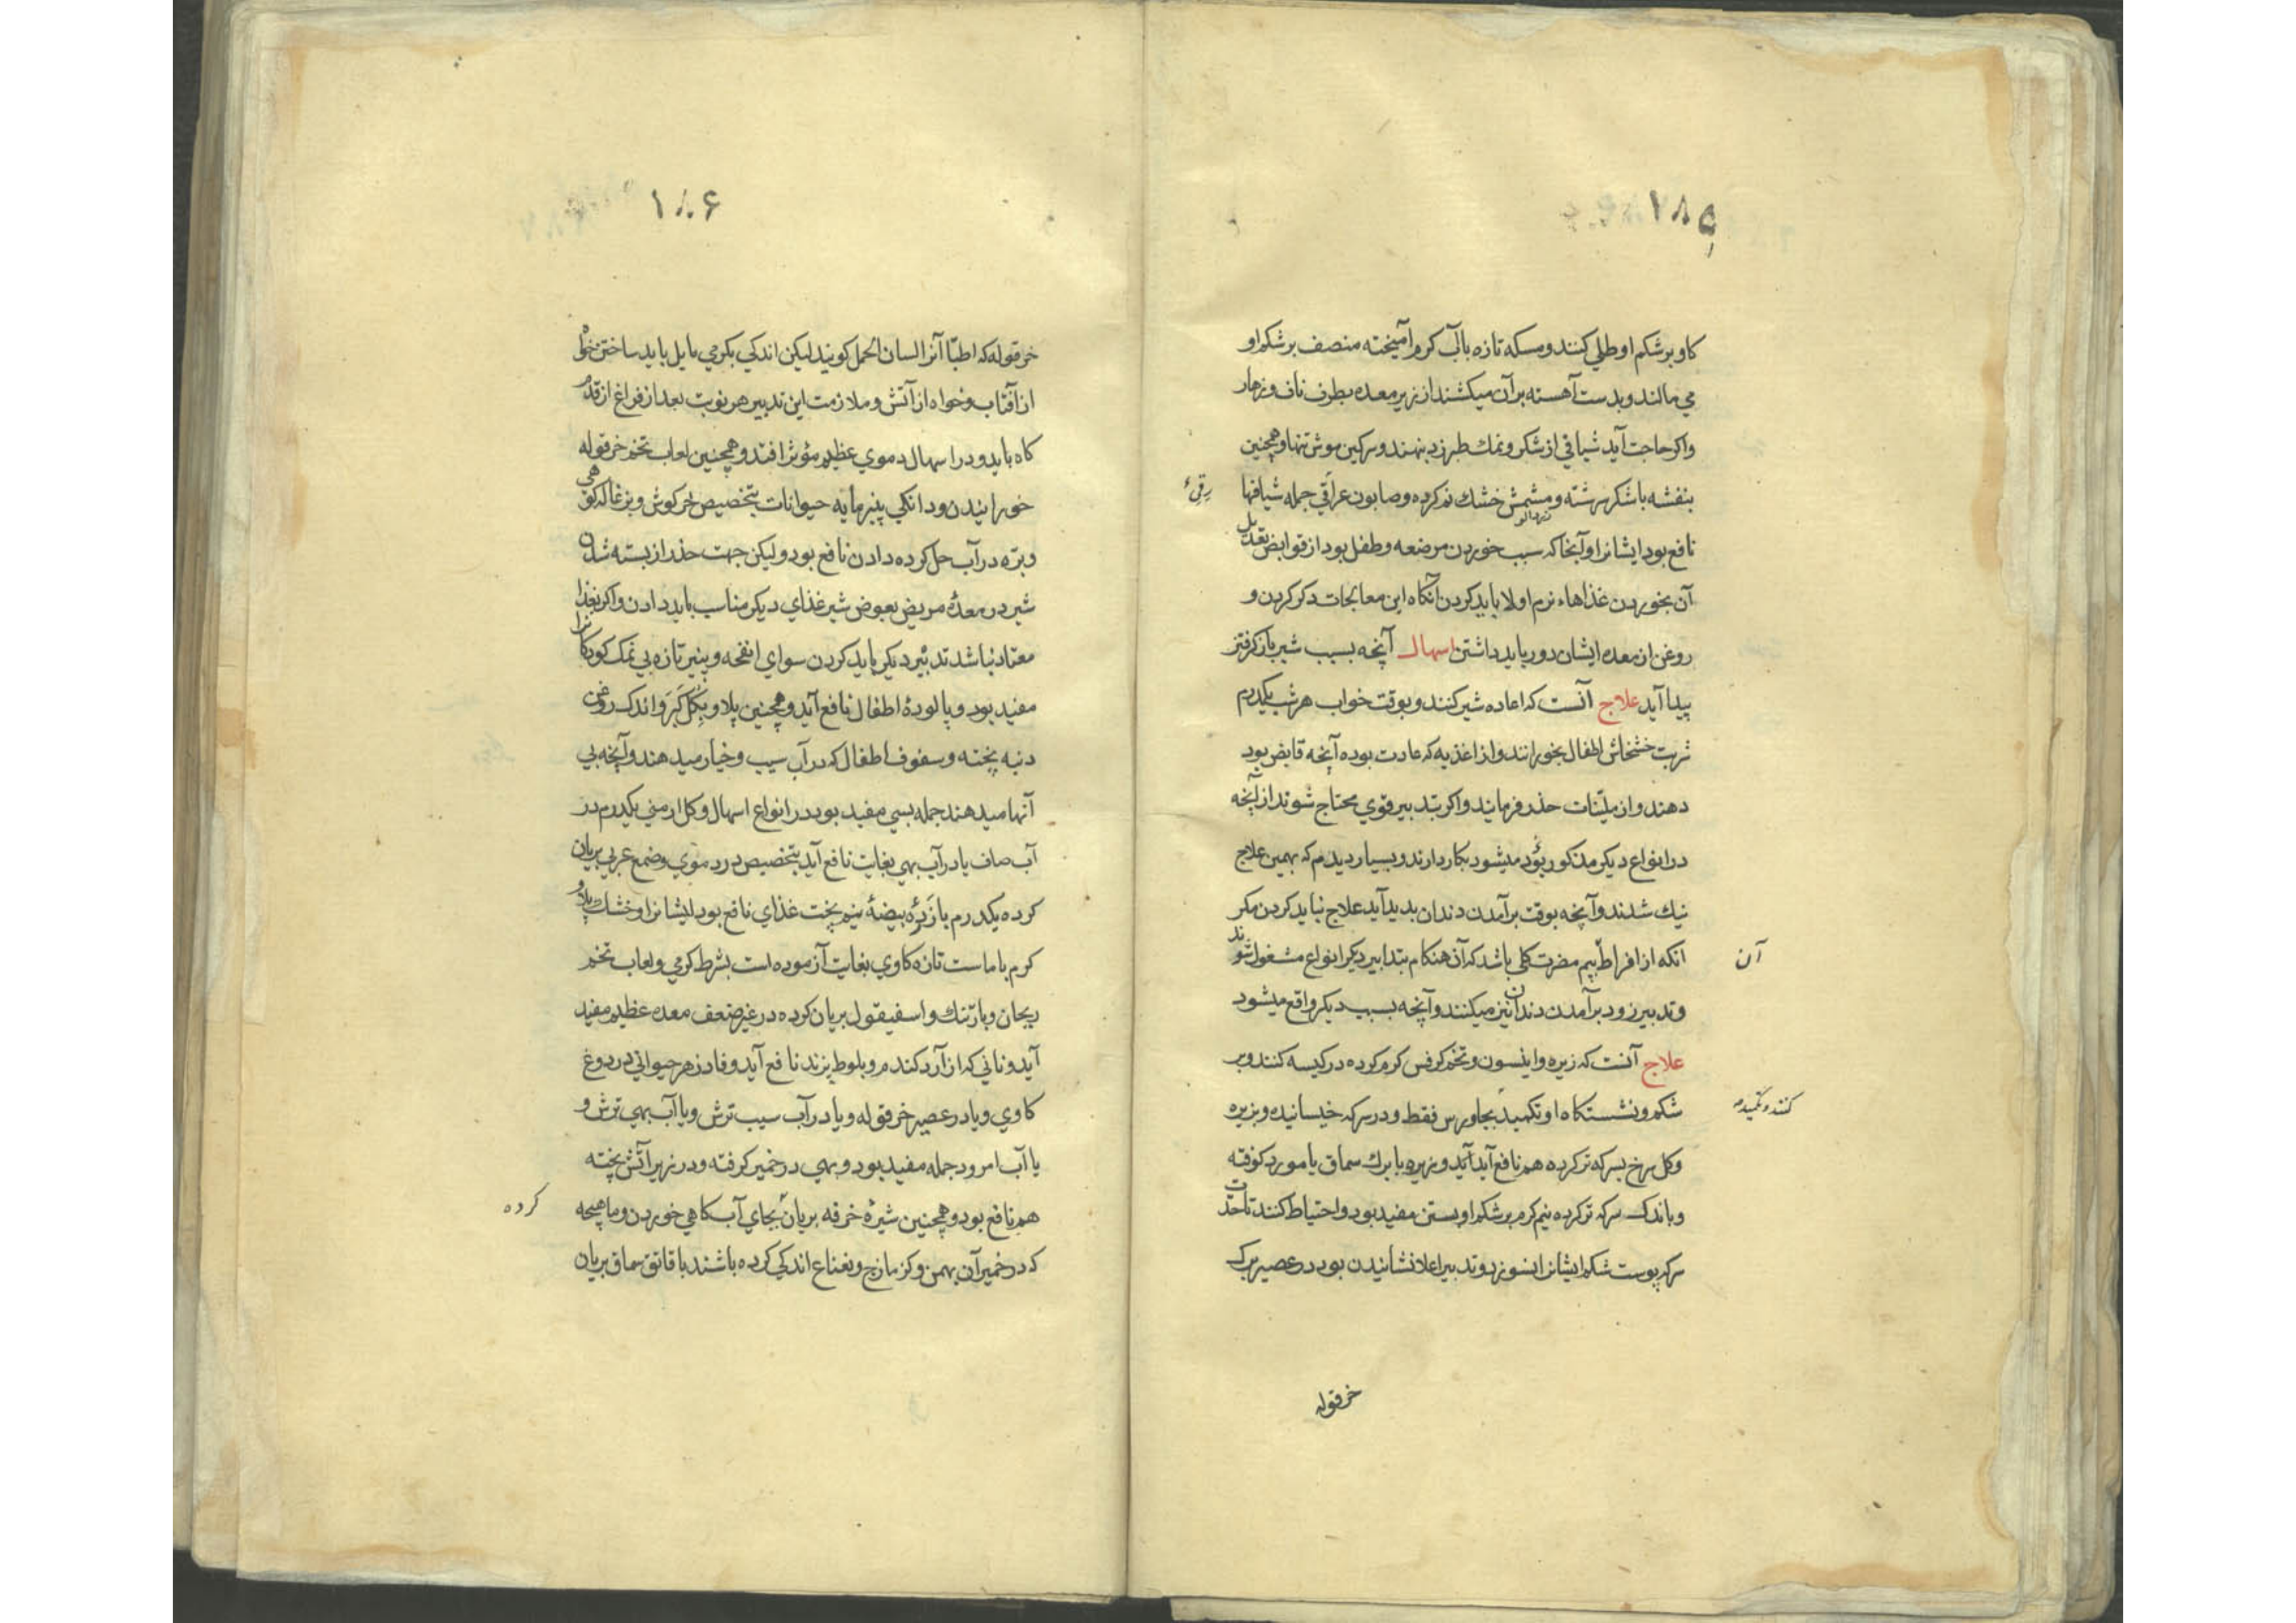 ۱۸۵
کاو بر شکم او طلی کنند و مسکه تازه باآب کرم آمیخته منصف بر شکم او
می مالند و بدست آهسته بر آن میکشند از زیر معده بطرف ناف و زهار
واکر حاجت آید شیافی از شکر و نمك طبرزد بنهند و سرکین موش تنها و همچنین
بنفشه با شکر سرشته و مشمش خشك نم کرده و صابون عراقی جمله شیافها
زردالو
رقیٔ
نافع بود ایشانرا و آنجا که سبب خوردن مرضعه و طفل بود از قوابض تعدیل
آن بخوردن غذاهاء نرم اولا باید کردن آنکاه این معالجات دکر کردن و
روغن از معده ایشان دور باید داشتن اسهال آنچه بسبب شیر باز کرفتن
پیدا آید علاج آنست که اعاده شیر کنند و بوقت خواب هر شب یکدرم
شربت خشخاش اطفال بخورانند و از اغذیه که عادت بوده آنچه قابض بود
دهند و از ملینات حذر فرمایند واکر بتدبیر قوی محتاج شوند از آنچه
در انواع دیکر مذکور بؤد میشود بکار دارند و بسیار دیدم که بهمین علاج
نیك شدند و آنچه بوقت برآمدن دندان بدید آید علاج نباید کردن مکر
انکه از افراط بیم مضرت کلی باشد که آن هنکام بتدابیر دیکر انواع مشغول شوند
آن
و تدبیر زود برآمدن دندان نیز میکنند و آنچه بسبب دیکر واقع میشود
علاج آنست که زیره و اینسون و تخم کرفس کرم کرده در کیسه کنند و بر
شکم و نشستکاه او تکمید بجاورس فقط و در سرکه خیسانیده و بزیره
کنند و تکمید
وکل سرخ بسرکه تر کرده هم نافع آید آید و زیره با برك سماق یا مورد کوفته
و باندك سرکه تر کرده نیم کرم بر شکم او بستن مفید بود و احتیاط کنند تا حدّت
سرکه پوست شکم ایشانرا نسوزد و تدبیر اعلا نشانیدن بود در عصیر برك
خرقوله
۱۸۶
خرقوله که اطبّا آنرا لسان الحمل کویند لیکن اندکی بکرمی مایل باید ساختن خواه
از آفتاب و خواه از آتش و ملازمت این تدبیر هر نوبت بعد از فراغ از قدم
کاه باید و در اسهال دموی عظیم مؤثر افتد و همچنین لعاب تخم خرقوله
خورانیدن و دانکی پنیرمایه حیوانات بتخصیص خرکوش و بزغاله کوهی
و بره در آب حل کرده دادن نافع بود و لیکن جهت حذر از بسته شدن
شیر در معدهٔ مریض بعوض شیر غذای دیکر مناسب باید دادن واکر بغذا
معتاد نباشد تدبیر دیکر باید کردن سوای انفحه و پنیر تازه بی نمك کودکانرا
مفید بود و پالودهٔ اطفال نافع آید و همچنین پلاو بکل کبر و اندك روغن
دنبه پخته و سفوف اطفال که در آب سیب و خیار میدهند و آنچه بی
آنها میدهند جمله بسی مفید بود در انواع اسهال وکل ارمنی یکدرم در
آب صاف یا در آب بهی بغایت نافع آید بتخصیص در دموی و ضمع عربی بریان
کرده یکدرم با زردهٔ بیضهٔ نیم پخت غذای نافع بود ایشانرا و خشك پلاو
کرم با ماست تازه کاوی بغایت آزموده است بشرط کرمی و لعاب تخم
ریحان و بارتنك و اسفیقول بریان کرده در غیر ضعف معده عظیم مفید
آید و نانی که از آرد کندم و بلوط پزند نافع آید و فادزهر حیوانی در دوغ
کاوی و یا در عصیر خرقوله و یا در آب سیب ترش و یا آب بهی ترش و
یا آب امرود جمله مفید بود و بهی در خمیر کرفته و در زیر آتش پخته
هم نافع بود و همچنین شیرهٔ خرفه بریان بجای آب کاهی خوردن و ماهیچه
کرده
که در خمیر آن بهمن و کزمازج و نعناع اندکی کرده باشند با قاتق سماق بریان